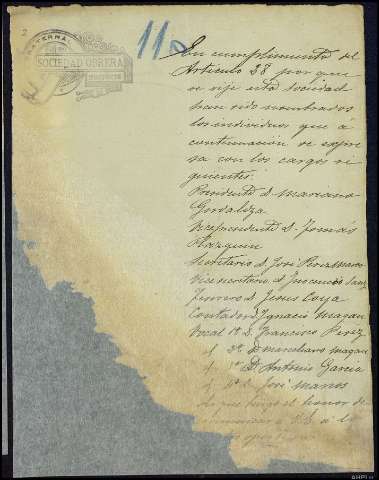 2
SOCIEDAD OBRERA
11
En cumplimiento del
Artículo 28 por que
se rije esta sociedad
han sido nombrados
los individuos que á
continuación se expre
sa con los cargos si
guientes:
Presidente D. Mariano
Gordaliza
Vicepresidente D. Tomás
Secretario D. José Perez
Vicesecretario D. Inocencio Sanz
D. Jesus Coya
Contador D. Ignacio Magan
Vocal 1º D. Francisco Perez
id 2º D. Marceliano Magan
id D. Antonio Garcia
D. José
Lo que tengo el honor de
comunicar a V.S. á los